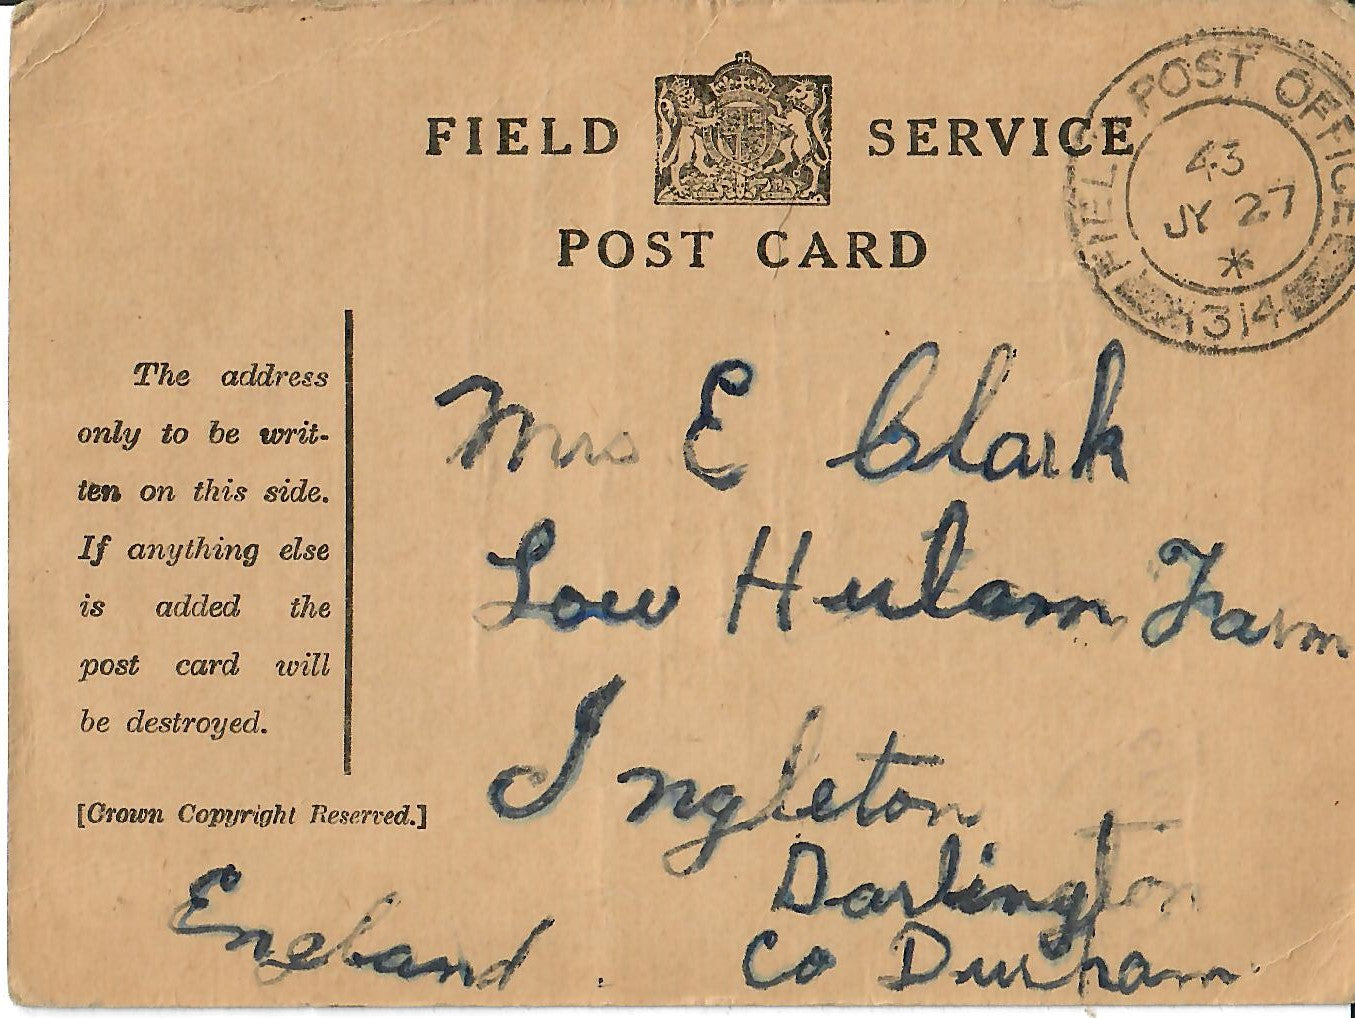 FIELD SERVICE
POST CARD
FIELD POST OFFICE
43
JY 27
*
314
The address
only to be writ-
ten on this side.
If anything else
is added the
post card will
be destroyed.
[Crown Copyright Reserved.]
Mrs E Clark
Low Hulam Farm
Ingleton
Darlington
Co Durham
England